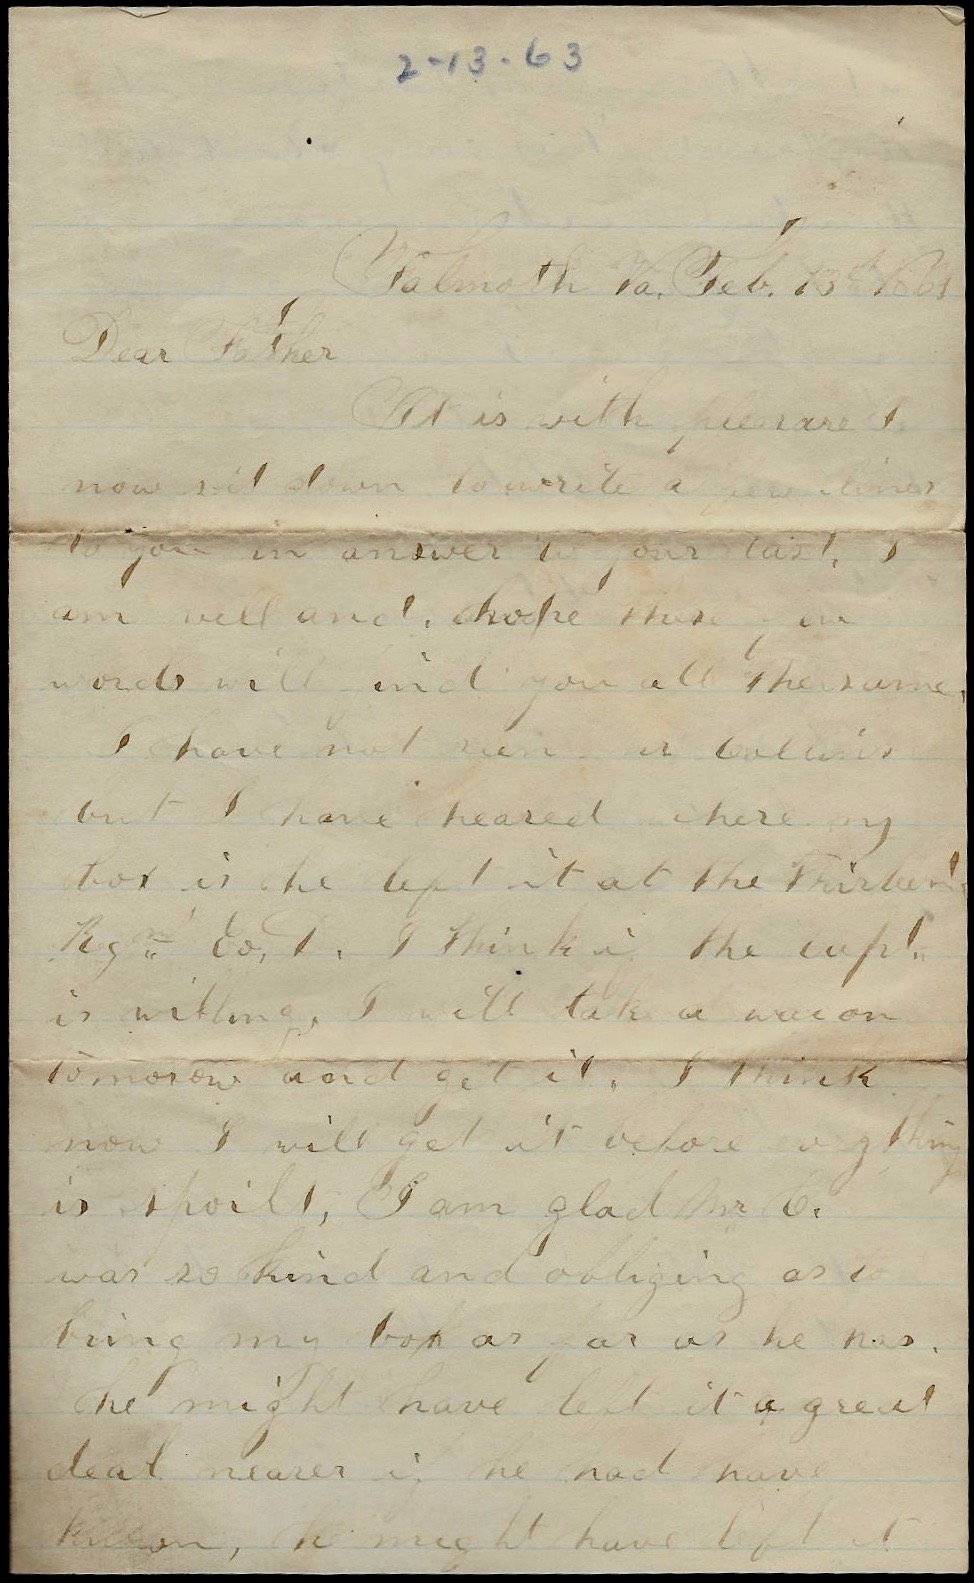 2-13-63
Falmoth Va. Feb. 13th 1863
Dear Father
It is with pleasure I
now sit down to write a few lines
to you in answer to your last. I
am well and. hope these few
words will find you all the same.
I have not seen
but I have heared where my
box is he left it at the Thirteenth
Co. I think if the capt.
is willing. I will take a wacon
tomorow and get it. I think
now I will get it before
is spoilt, I am glad Mr C.
was so kind and obliging as to
bring my box as far as he has.
he might have left it a great
deal nearer if he had have
known, he might have left it